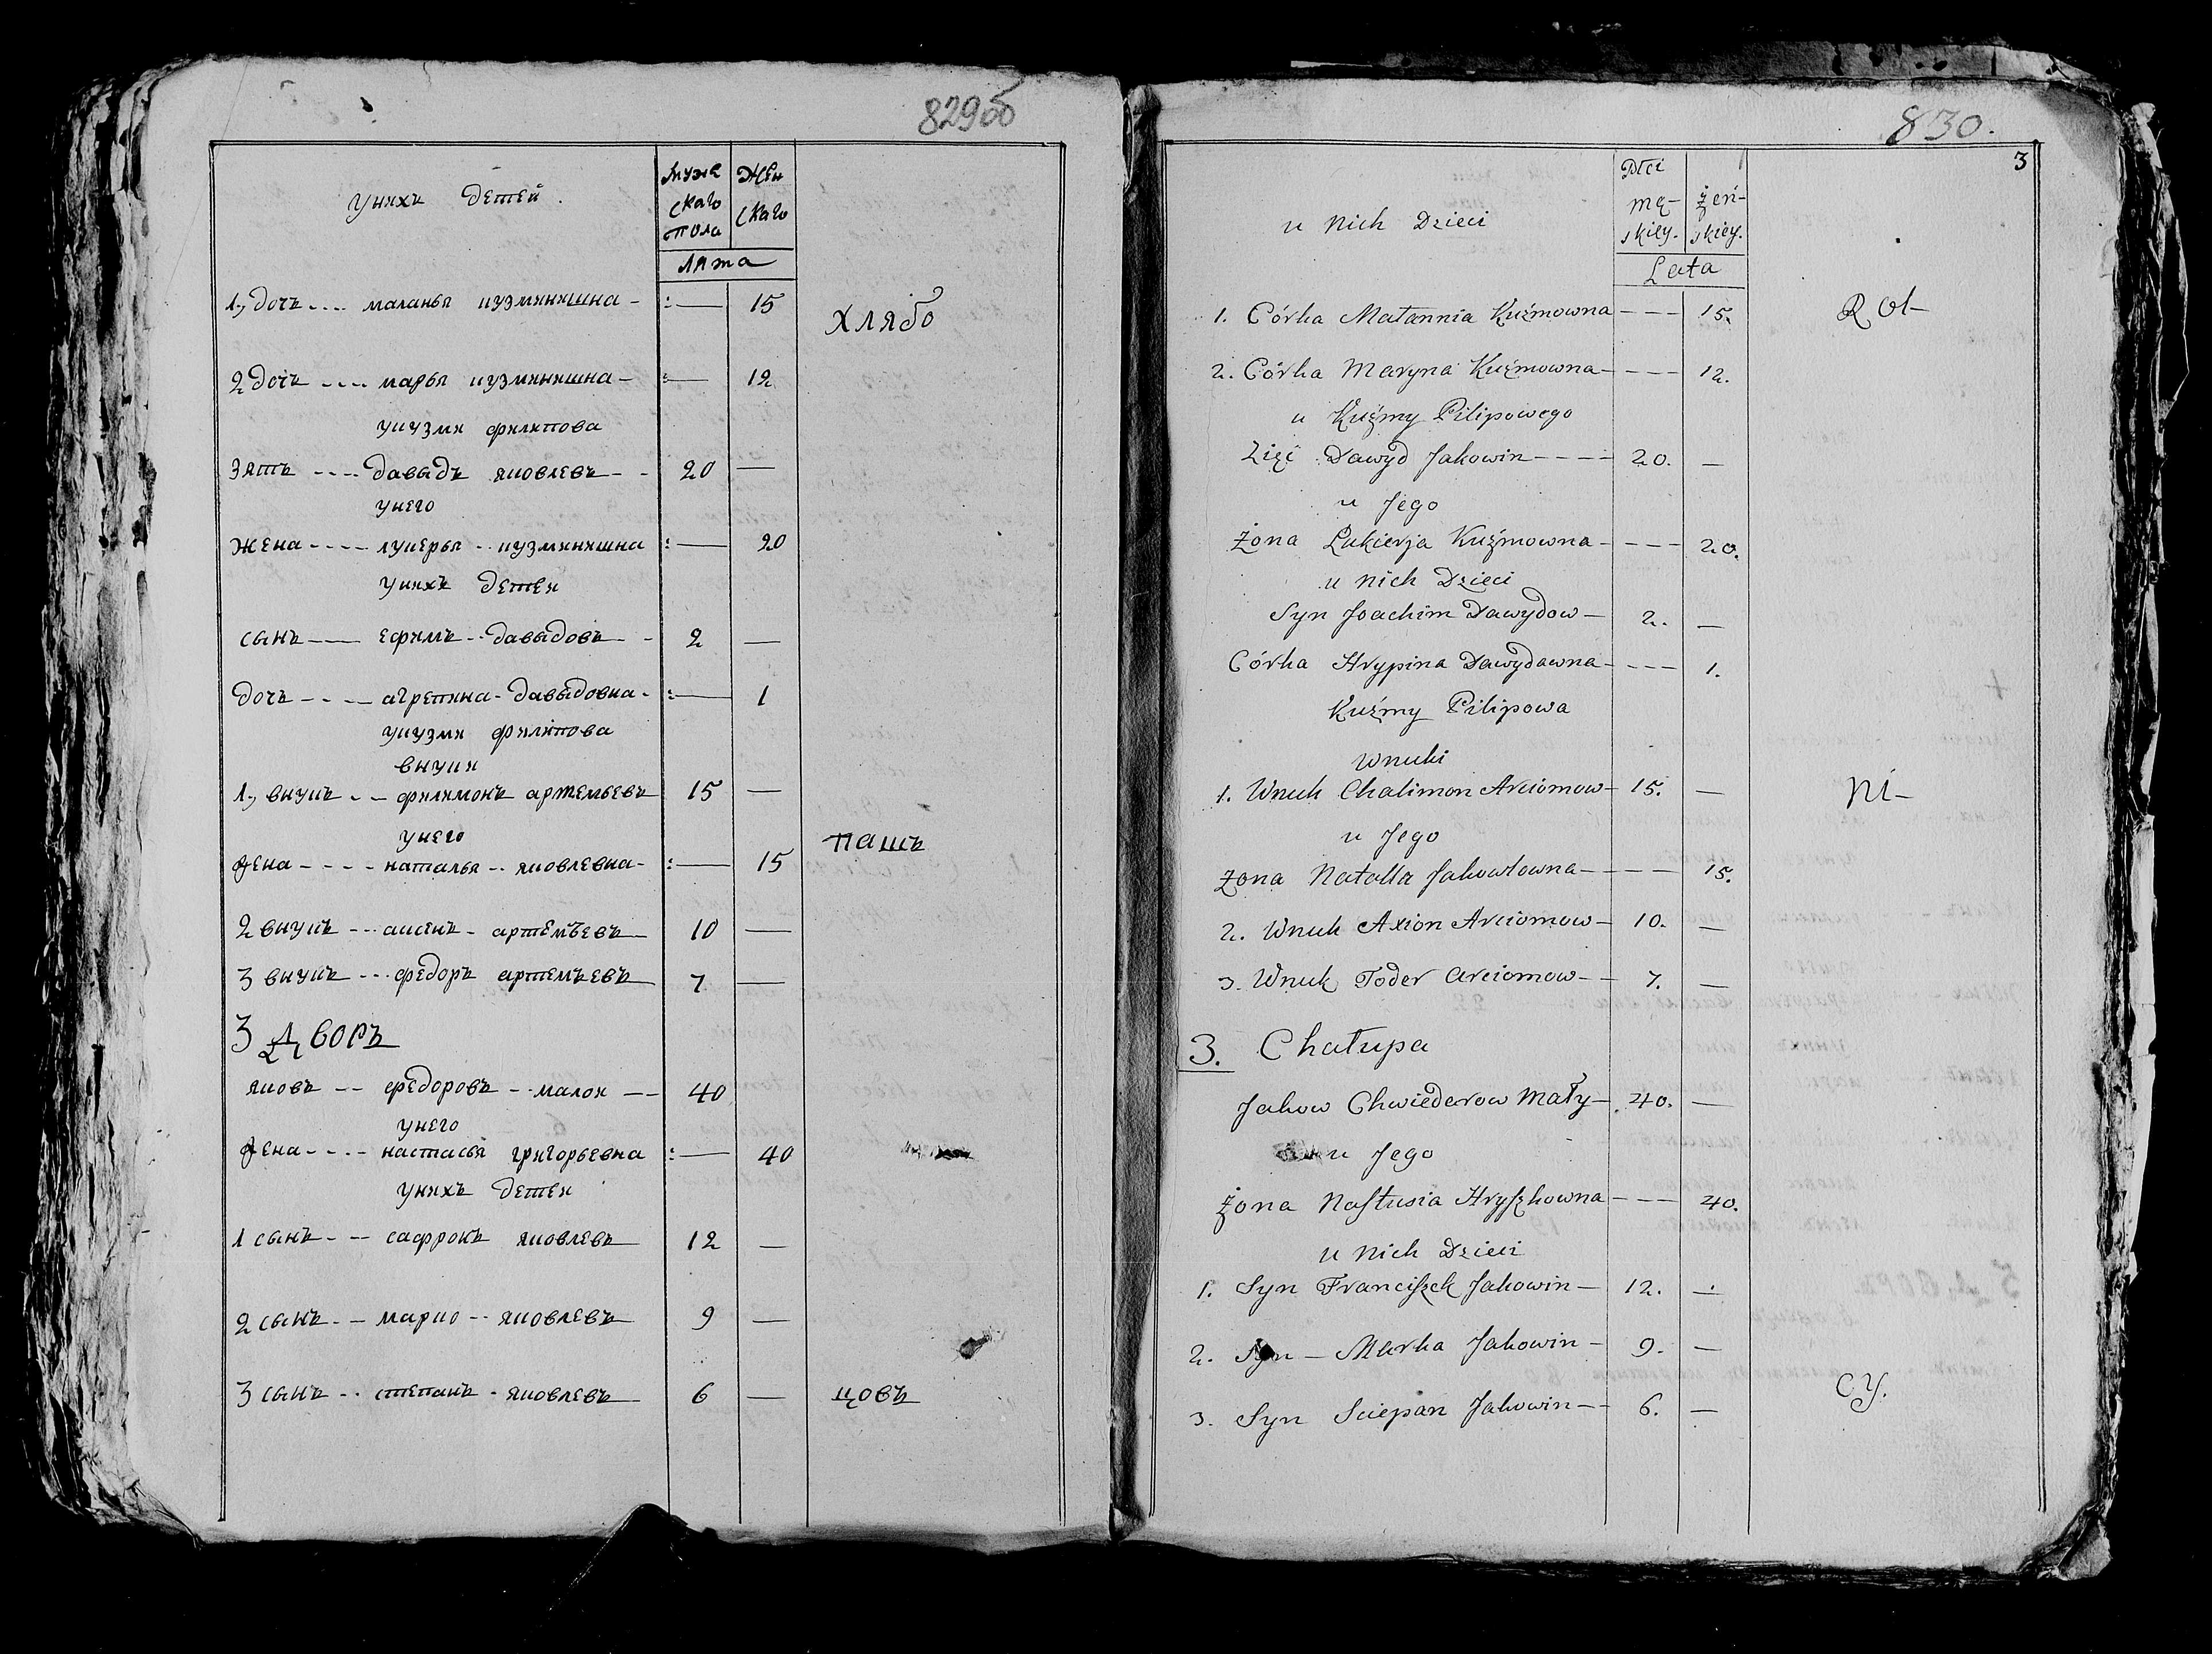 829об
унихъ детей
муже
скаго
пола
жен
скаго
лята
1, дочь маланья кузминишна 15
хлябо
2 дочь марья кузминишна 12
укузми филипова
зять давыдъ яковлевъ 20 —
унего
жена лукерья кузминишна 20
унихъ детеи
сынъ ефимъ давыдовъ 2 —
дочь агрепина давыдовна 1
укузми филипова
внуки
1, внукъ филимонъ артемьевъ 15 —
унего
пашъ
жена наталья яковлевна 15
2 внукъ аксенъ артемъевъ 10 —
3 внукъ федоръ артемъевъ 7 —
3 дворъ
яковъ федоровъ малои 40
унего
жена настасья григорьевна 40
унихъ детеи
1 сынъ сафронъ яковлевъ 12 —
2 сынъ марко яковлевъ 9 —
3 сынъ степанъ яковлевъ 6 —
цовъ
830.
3
u Nich Dzieci
Płci
mę-
skiey.
żeń-
skiey.
Lata
1. Córka Małannia Kuźmowna - - - 15.
Rol-
2. Córka Maryna Kuźmowna - - - 12.
u Kuźmy Pilipowego
Zięć Dawyd Jakowin - - - - 20. —
u Jego
Żona Łukierja Kuźmowna - - - 20.
u Nich Dzieci
Syn Joachim Dawydow — 2. —
Córka Hrypina Dawydawna - - - 1.
Kuźmy Pilipowa
Wnuki
1. Wnuk Chalimon Arciomow - 15. —
Ni-
u Jego
Żona Natalla Jakowłowna - - - 15.
2. Wnuk Axion Arciomow - 10. —
3. Wnuk Toder Arciomow - - 7. —
3. Chałupa
Jakow Chwiederow Mały - 40. —
u Jego
Żona Nastusia Hryszkowna - - - 40.
u Nich Dzieci
1. Syn Franciszek Jakowin — 12. —
2. Syn — Marka Jakowin - 9. —
3. Syn Sciepan Jakowin - - 6. —
cy.